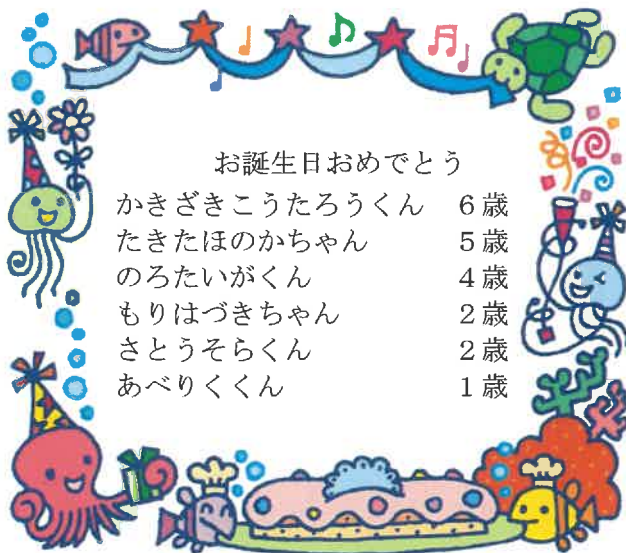 お誕生日おめでとう
かきざきこうたろうくん　６歳
たきたほのかちゃん　５歳
のろたいがくん　４歳
もりはづきちゃん　２歳
さとうそらくん　２歳
あべりくくん　１歳